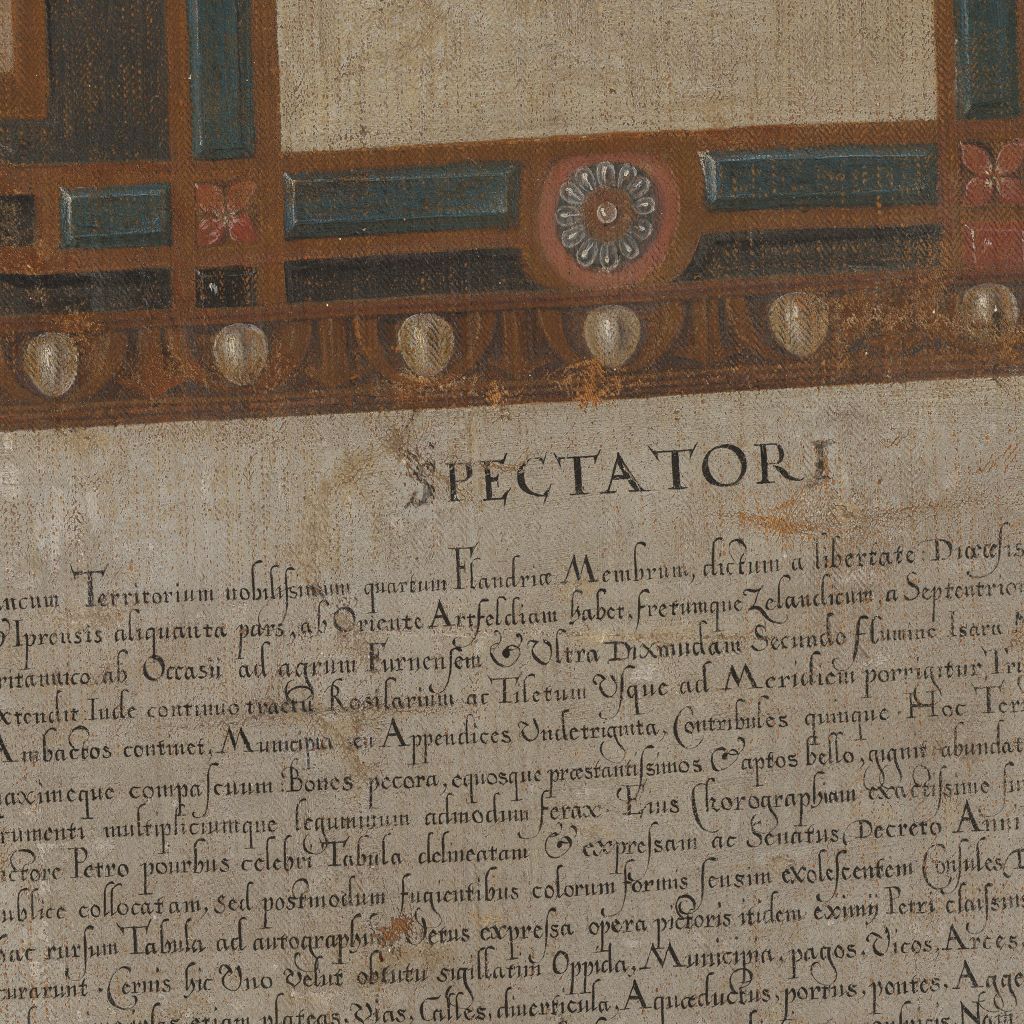 SPECTATORI
Territorium nobilissimum quartum Flandriæ Membrum, dictum a libertate Diœcesis
Iprensis aliquanta pars, ab Oriente Artfeldiam habet, fretumque Zelandicum, a Septentrio
ritannico ab Occasu ad agrum Furnensem & Ultra Dixmudam Secundo flumine Isara
xtendit Inde continuo tractu Rosilarium ac Tiletum Usque ad Meridiem porrigitur, Tri
Ambactos continet, Municipia seu Appendices Undetriginta, Contribules quinque. Hoc Terr
aximeque compascuum Boves pecora, equosque præstantissimos & aptos bello, gignit abundat
rumenti multipliciumque leguminum admodum ferax. Eius Chorographiam exactissime
ictore Petro pourbus celebri Tabula delineatam & expressam ac Senatus Decreto Anni
ublice collocatam, sed postmodum fugientibus colorum formis sensim exolescentem Consules
hac rursum Tabula ad autographum Verus expressa opera pictoris itidem eximij Petri claissins
urarunt. Cernis hic Uno velut obtutu sigillatim Oppida, Municipia, pagos, Vicos, Arces,
etiam plateas, Vias, Calles, diverticula, Aquæductus, portus, pontes, Agge